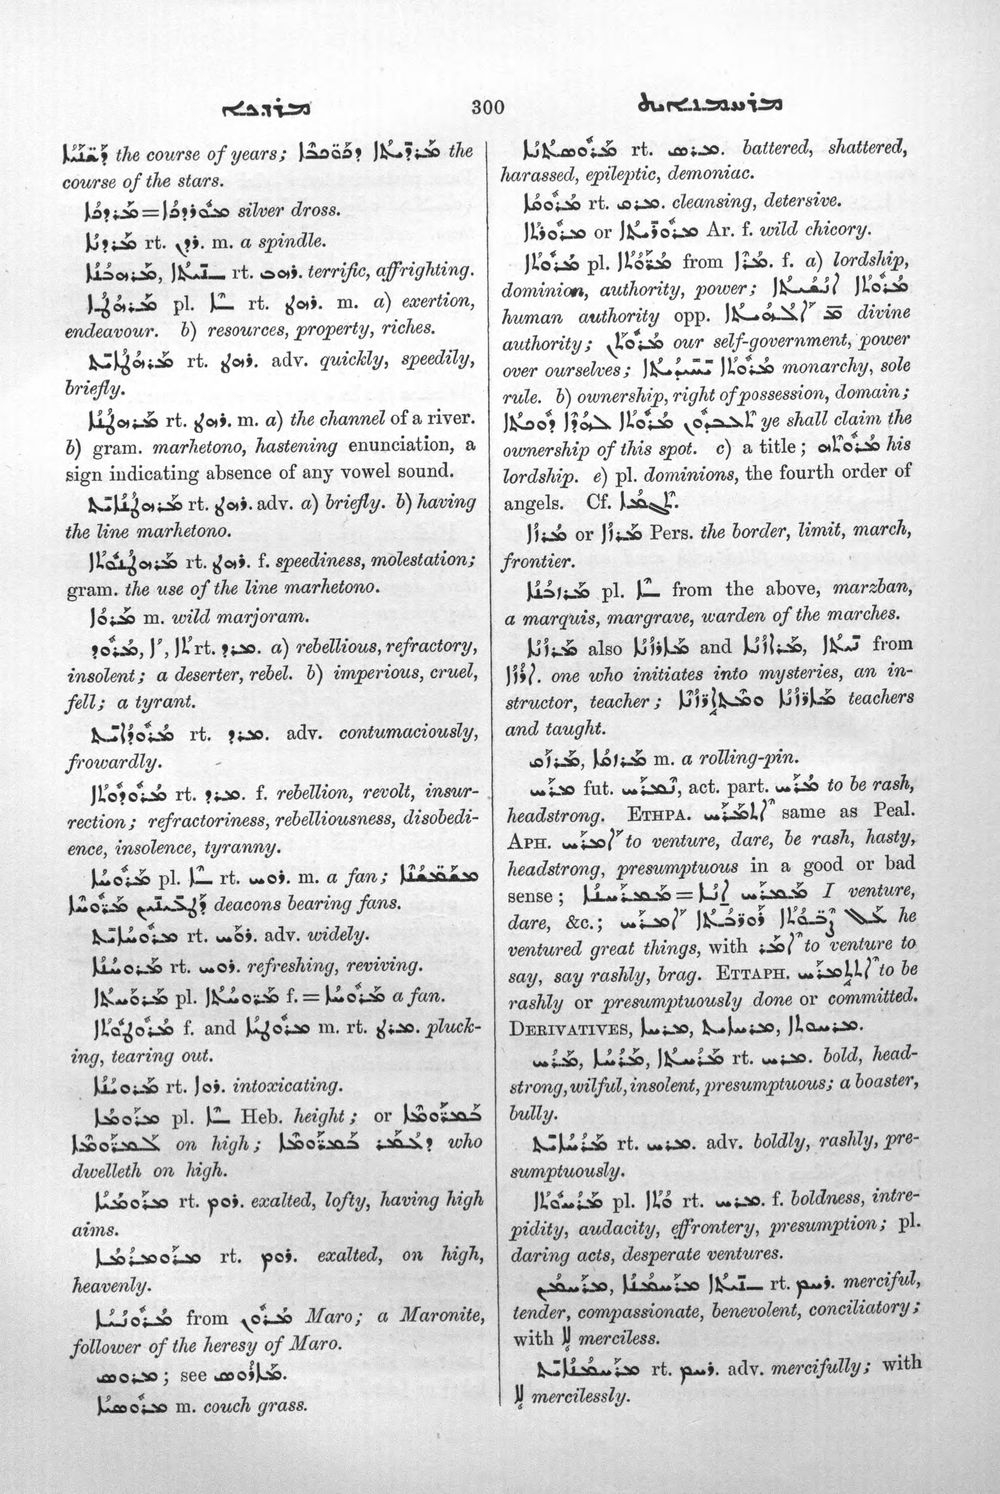 ܡܪܕܦܐ 300 ܡܪܚܡܢܐܝܬ
ܕܫܢܝܐ the course of years; ܡܪܕܝܬܐ ܕܟܘܟܒܐ the
course of the stars.
ܡܪܕܟܐ=ܡܘܪܕܟܐ silver dross.
ܡܪܕܢܐ rt. ܪܕܢ. m. a spindle.
ܡܪܗܒܢܐ, ܢܝܬܐ rt. ܪܗܒ. terrific, affrighting.
ܡܪܗܛܐ pl. ܐ rt. ܪܗܛ. m. a) exertion,
endeavour. b) resources, property, riches.
ܡܪܗܛܐܝܬ rt. ܪܗܛ. adv. quickly, speedily,
briefly.
ܡܪܗܛܢܐ rt. ܪܗܛ. m. a) the channel of a river.
b) gram. marhetono, hastening enunciation, a
sign indicating absence of any vowel sound.
ܡܪܗܛܢܐܝܬ rt. ܪܗܛ. adv. a) briefly. b) having
the line marhetono.
ܡܪܗܛܢܘܬܐ rt. ܪܗܛ. f. speediness, molestation;
gram. the use of the line marhetono.
ܡܪܘܐ m. wild marjoram.
ܡܪܘܕ, ܐ, ܬܐ rt. ܡܪܕ. a) rebellious, refractory,
insolent; a deserter, rebel. b) imperious, cruel,
fell; a tyrant.
ܡܪܘܕܐܝܬ rt. ܡܪܕ. adv. contumaciously,
frowardly.
ܡܪܘܕܘܬܐ rt. ܡܪܕ. f. rebellion, revolt, insur-
rection; refractoriness, rebelliousness, disobedi-
ence, insolence, tyranny.
ܡܪܘܚܐ pl. ܐ rt. ܪܘܚ. m. a fan; ܡܫܡܫܢܐ
ܕܛܥܝܢܝܢ ܡܪܘܚܐ deacons bearing fans.
ܡܪܘܚܐܝܬ rt. ܪܘܚ. adv. widely.
ܡܪܘܚܢܐ rt. ܪܘܚ. refreshing, reviving.
ܡܪܘܚܬܐ pl. ܡܪܘܚܬܐ f.=ܡܪܘܚܐ a fan.
ܡܪܘܛܘܬܐ f. and ܡܪܘܛܝܐ m. rt. ܡܪܛ. pluck-
ing, tearing out.
ܡܪܘܝܢܐ rt. ܪܘܐ. intoxicating.
ܡܪܘܡܐ pl. ܐ Heb. height; or ܒܡܪܘܡܐ
ܠܡܪܘܡܐ on high; ܕܥܡܪ ܒܡܪܘܡܐ who
dwelleth on high.
ܡܪܘܡܝܐ rt. ܪܘܡ. exalted, lofty, having high
aims.
ܡܪܘܡܪܡܐ rt. ܪܘܡ. exalted, on high,
heavenly.
ܡܪܘܢܝܐ from ܡܪܘܢ Maro; a Maronite,
follower of the heresy of Maro.
ܡܪܘܣ; see
ܡܪܘܣܝܐ m. couch grass.
ܡܪܘܣܬܢܐ rt. ܡܪܣ. battered, shattered,
harassed, epileptic, demoniac.
ܡܪܘܩܐ rt. ܡܪܩ. cleansing, detersive.
ܡܪܘܪܬܐ or ܡܪܘܪܝܬܐ Ar. f. wild chicory.
ܡܪܘܬܐ pl. ܡܪܘܬܐ from ܡܪܐ. f. a) lordship,
dominion, authority, power; ܡܪܘܬܐ ܐܢܫܝܬܐ
human authority opp. ܐܠܗܝܬܐ divine
authority; ܡܪܘܬܢ our self-government, power
over ourselves; ܡܪܘܬܐ ܝܚܝܕܝܬܐ monarchy, sole
rule. b) ownership, right of possession, domain;
ܬܥܒܕܘܢ ܡܪܘܬܐ ܠܗܕܐ ܕܘܟܬܐ ye shall claim the
ownership of this spot. c) a title; ܡܪܘܬܗ his
lordship. e) pl. dominions, the fourth order of
angels. Cf. ܬܓܡܐ.
ܡܪܙܐ or ܡܪܙܐ Pers. the border, limit, march,
frontier.
ܡܪܙܒܢܐ pl. ܐ from the above, marzban,
a marquis, margrave, warden of the marches.
ܡܪܙܢܐ also ܡܬܪܙܢܐ and ܡܪܐܙܢܐ, ܢܝܬܐ from
ܐܪܙܐ. one who initiates into mysteries, an in-
structor, teacher; teachers
and taught.
m. a rolling-pin.
ܡܪܚ fut. ܢܡܪܚ, act. part. ܡܪܚ to be rash,
headstrong. ETHPA. ܐܬܡܪܚ same as Peal.
APH. ܐܡܪܚ to venture, dare, be rash, hasty,
headstrong, presumptuous in a good or bad
sense; ܡܡܪܚܢܐ=ܡܡܪܚ ܐܢܐ I venture,
dare, &c.; ܐܡܪܚ ܪܘܪܒܬܐ he
ventured great things, with ܐܡܪ to venture to
say, say rashly, brag. ETTAPH. ܐܬܬܡܪܚ to be
rashly or presumptuously done or committed.
DERIVATIVES, ܡܪܚܐ, ܡܪܚܐܝܬ, ܡܪܚܘܬܐ.
ܡܪܚ, ܡܪܚܐ, ܡܪܚܬܐ rt. ܡܪܚ. bold, head-
strong, wilful, insolent, presumptuous; a boaster,
bully.
ܡܪܚܐܝܬ rt. ܡܪܚ. adv. boldly, rashly, pre-
sumptuously.
ܡܪܚܘܬܐ pl. ܘܬܐ rt. ܡܪܚ. f. boldness, intre-
pidity, audacity, effrontery, presumption; pl.
daring acts, desperate ventures.
ܡܪܚܡܢ, ܡܪܚܡܢܐ, ܢܝܬܐ rt. ܪܚܡ. merciful,
tender, compassionate, benevolent, conciliatory;
with ܠܐ merciless.
ܡܪܚܡܢܐܝܬ rt. ܪܚܡ. adv. mercifully; with
ܠܐ mercilessly.